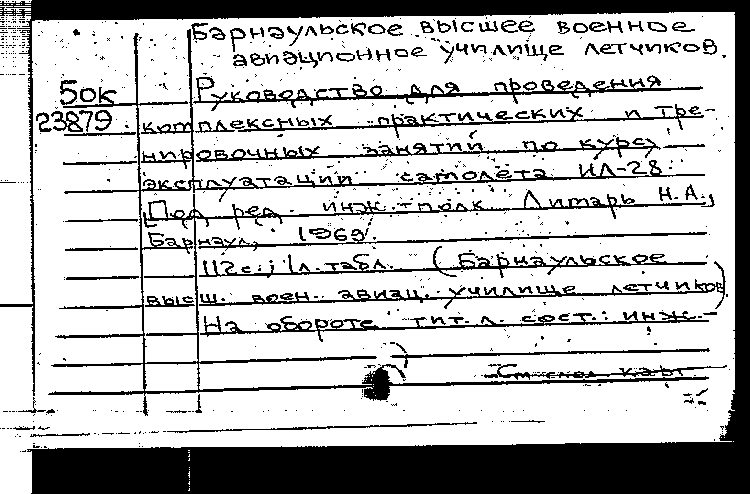 Барнаульское высшее военное
авиационное училище летчиков.
50к Руководство для проведения
23879 комплексных практических и тре-
нировочных занятий по курсу
эксплуатации самолёта ИЛ-28.
[Под ред. инж.-полк. Литарь Н.А.,
Барнаул, 1969.
112с.; 1л. табл. (Барнаульское
высш. воен. авиац. училище летчиков)
На обороте тит. л. сост.: инж.-
См след. карт